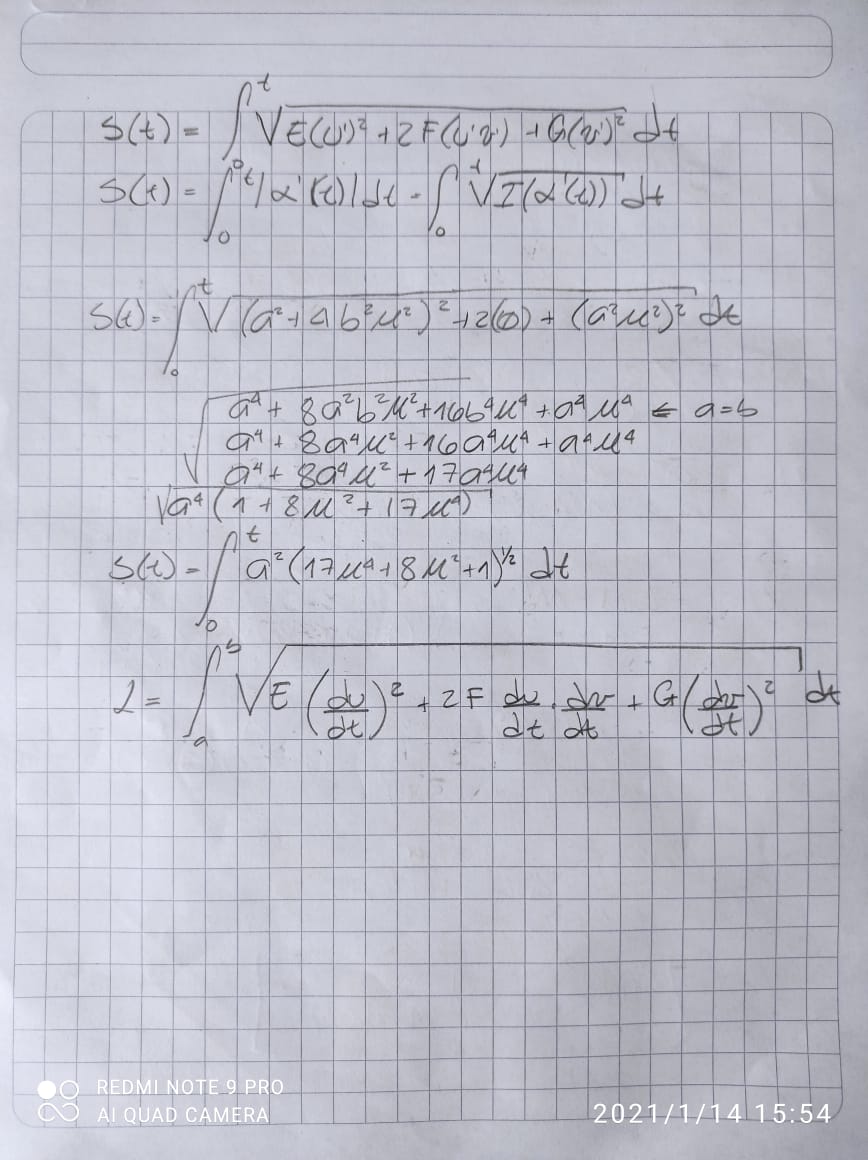 S(t) = ∫₀ᵗ √E(u')² + 2F(u'v') + G(v')² dt
S(t) = ∫₀ᵗ |α'(t)| dt = ∫₀ᵗ √I(α'(t)) dt
S(t) = ∫₀ᵗ √(a² + 4b²u²)² + 2(0) + (a²u²)² dt
√a⁴ + 8a²b²u² + 16b⁴u⁴ + a⁴u⁴ ← a=b
a⁴ + 8a⁴u² + 16a⁴u⁴ + a⁴u⁴
a⁴ + 8a⁴u² + 17a⁴u⁴
√a⁴(1 + 8u² + 17u⁴)
S(t) = ∫₀ᵗ a²(17u⁴ + 8u² + 1)^½ dt
L = ∫ₐᵇ √E (du/dt)² + 2F du/dt · dv/dt + G (dv/dt)² dt
REDMI NOTE 9 PRO
AI QUAD CAMERA
2021/1/14 15:54